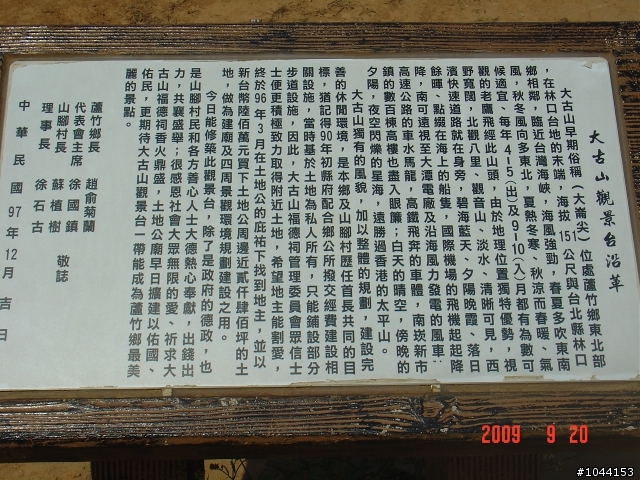 大古山觀景台沿革
大古山早期俗稱（大崙尖）位處蘆竹鄉東北部
，在林口台地的末端，海拔151公尺與台北縣林口
鄉相鄰，臨近台灣海峽，海風強勁，春夏多吹東南
風，秋冬風向多東北，夏熱冬寒、秋涼而春暖、氣
候適宜、每年4-5(出)及9-10(入)月都有為數可
觀的老鷹飛經此山頭，由於地理位置獨特優勢，視
野寬闊，北觀八里、觀音山、淡水、清晰可見，西
濱快速道路就在身旁，碧海藍天、夕陽晚霞、落日
餘暉、點綴在海上的船隻，國際機場的飛機起起降
降，南可遠視至大潭電廠及沿海風力發電的風車、
高速公路的車水馬龍，高鐵飛奔的車體，南崁新市
鎮的數百棟高樓也盡入眼簾；白天的晴空，傍晚的
夕陽，夜空閃爍的星海，遠勝過香港的太平山。
大古山獨有的風貌，加以整體的規劃，建設完
善的休閒環境，是本鄉及山腳村歷任首長共同的目
標，猶記得90年初縣府配合鄉公所撥交經費建設相
關設施，當時基於土地為私人所有，只能鋪設部分
步道設施，因此，大古山福德祠管理委員會眾信士
士便更積極致力取得附近土地，希望地主能割愛，
終於96年3月在土地公的庇祐下找到地主，並以
新台幣陸佰萬元買下土地公周邊近貳仟肆佰坪的土
地，做為建廟及四周景觀環境規劃建設之用。
今日能修築此觀景台，除了是政府的德政，也
是山腳村民和各方善心人士大德熱心奉獻，出錢出
力，共襄盛舉；很感恩社會大眾無限的愛、祈求大
古山福德祠香火鼎盛，土地公廟早日擴建以佑國、
佑民，更期待大古山觀景台一帶能成為蘆竹鄉最美
麗的景點。
蘆竹鄉長 趙俞菊蘭
代表會主席 徐國鎮
山腳村長 蘇植樹 敬誌
理事長 徐石古
中華民國97年12月吉日
2009 9 20
#1044153